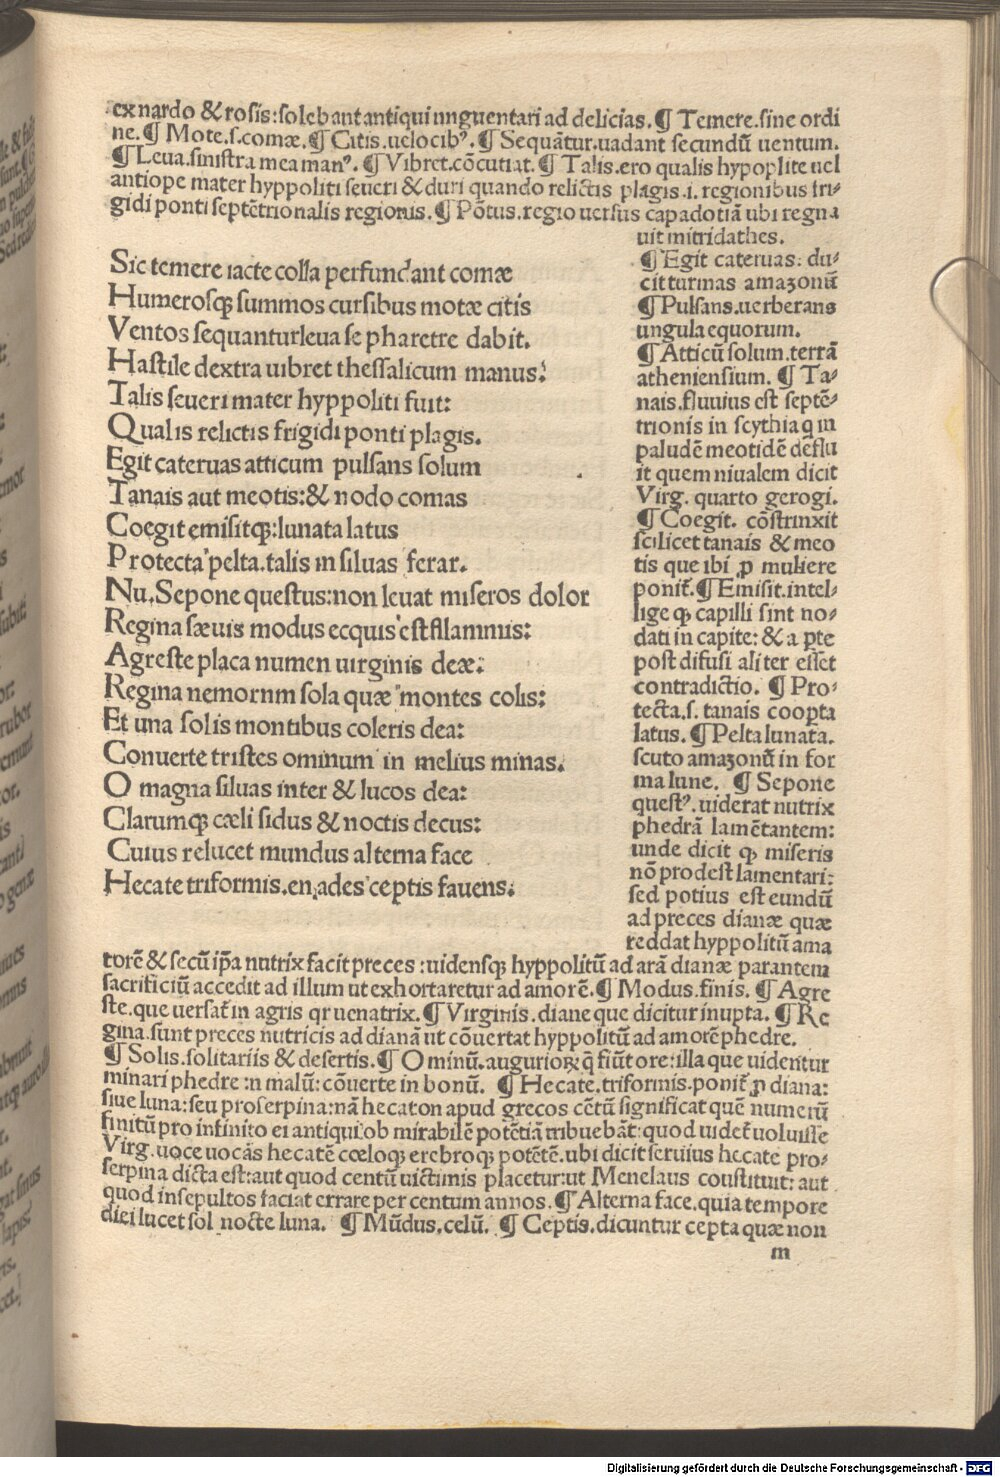 ex nardo & rosis:solebant antiqui unguentari ad delicias.¶ Temere.sine ordi
ne.¶ Mote.s.comæ.¶ Citis.uelocibꝰ.¶ Sequātur.uadant secundū uentum.
¶ Leua.sinistra mea manꝰ.¶ Vibret.cōcutiat.¶ Talis.ero qualis hypoplite uel
antiope mater hyppoliti seueri & duri quando relictis plagis.i.regionibus fri⸗
gidi ponti septētrionalis regionis.¶ Pōtus.regio uersus capadotiā ubi regna
uit mitridathes.
Sic temere iacte colla perfundant comæ
Humerosqꝫ summos cursibus motæ citis
Ventos sequantur leua se pharetre dabit.
Hastile dextra uibret thessalicum manus:
Talis seueri mater hyppoliti fuit:
Qualis relictis frigidi ponti plagis.
Egit cateruas atticum pulsans solum
Tanais aut meotis:& nodo comas
Coegit emisitqꝫ:lunata latus
Protecta pelta.talis in siluas ferar.
Nu.Sepone questus:non leuat miseros dolor
Regina sæuis modus ecquis est flamnis:
Agreste placa numen uirginis deæ:
Regina nemornm sola quæ montes colis:
Et una solis montibus coleris dea:
Conuerte tristes ominum in melius minas.
O magna siluas inter & lucos dea:
Clarumqꝫ cæli sidus & noctis decus:
Cuius relucet mundus alterna face
Hecate triformis.en ades ceptis fauens:
¶ Egit cateruas: du⸗
cit turmas amaʒonū
¶ Pulsans.uerberans
ungula equorum.
¶ Atticū solum.terrā
atheniensium. ¶ Ta⸗
nais.fluuius est septē⸗
trionis in scythia q in
paludē meotidē deflu
it quem niualem dicit
Virg. quarto gerogi.
¶ Coegit. cōstrinxit
scilicet tanais & meo
tis que ibi ꝓ muliere
ponit̄.¶ Emisit.intel⸗
lige qꝫ capilli sint no⸗
dati in capite: & a ꝑte
post difusi aliter esset
contradictio. ¶ Pro⸗
tecta.s. tanais coopta
latus. ¶ Pelta lunata.
scuto amaʒonū in for
ma lune. ¶ Sepone
questꝰ. uiderat nutrix
phedrā lamētantem:
unde dicit qꝫ miseris
nō prodest lamentari:
sed potius est eundū
ad preces dianæ quæ
reddat hyppolitū ama
torē & secū ip̄a nutrix facit preces :uidensqꝫ hyppolitū ad arā dianæ parantem
sacrificiū accedit ad illum ut exhortaretur ad amorē.¶ Modus.finis. ¶ Agre
ste.que uersat̄ in agris qr uenatrix.¶ Virginis.diane que dicitur inupta. ¶ Re
gina.sunt preces nutricis ad dianā ut cōuertat hyppolitū ad amorē phedre.
¶ Solis.solitariis & desertis.¶ O minū.auguriorꝝ q̄ fiūt ore:illa que uidentur
minari phedre :n malū: cōuerte in bonū. ¶ Hecate.triformis.ponit̄ ꝓ diana:
siue luna:seu proserpina:nā hecaton apud grecos cētū significat quē numerū
finitū pro infinito ei antiqui ob mirabilē potētiā tribuebāt:quod uidet̄ uoluisse
Virg.uoce uocās hecatē cœloqꝫ erebroqꝫ potētē.ubi dicit seruius hecate pro⸗
serpina dicta est:aut quod centū uictimis placetur:ut Menelaus constituit: aut
quod insepultos faciat errare per centum annos.¶ Alterna face.quia tempore
diei lucet sol nocte luna. ¶ Mūdus.celū. ¶ Ceptis.dicuntur cepta quæ non
m
Digitalisierung gefördert durch die Deutsche Forschungsgemeinschaft - DFG